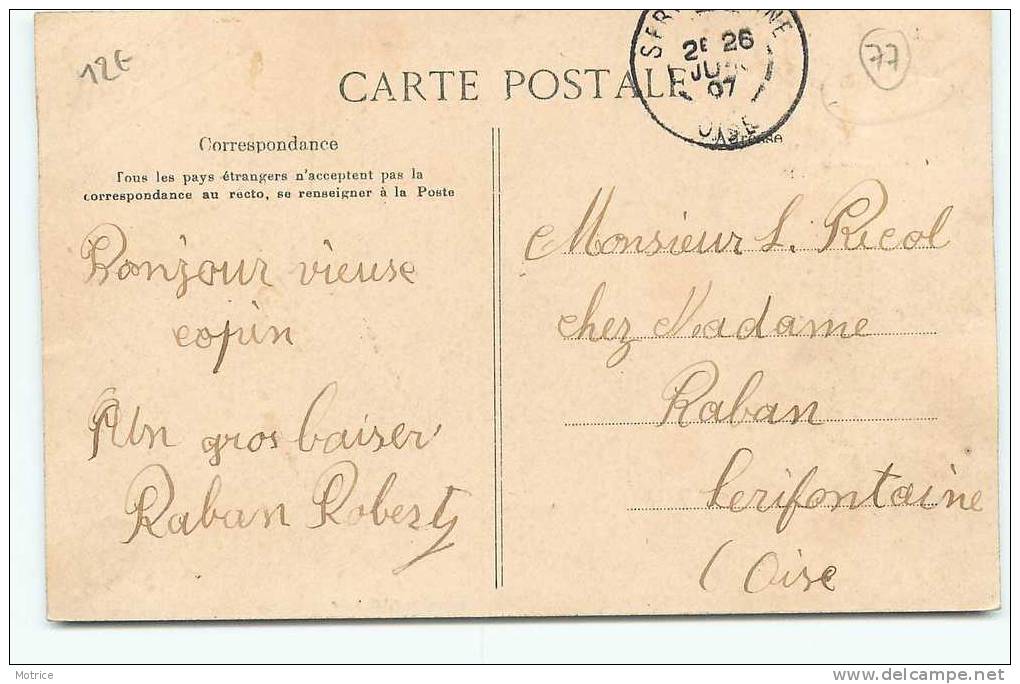 12€
CARTE POSTALE
26
07
OISE
77
Correspondance
Tous les pays étrangers n'acceptent pas la
correspondance au recto, se renseigner à la Poste
Bonjour vieuse
copin
Un gros baiser
Raban Robert
Monsieur L. Ricol
chez Madame
Raban
Serifontaine
(Oise
Motrice
www.delcampe.net